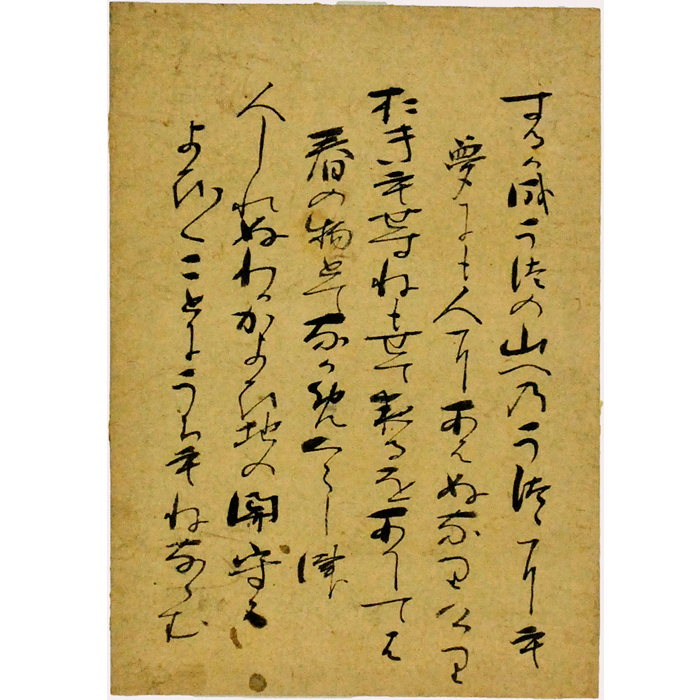 するか成うつの山へのうつゝにも
夢にも人にあはぬなりけり
おきもせすねもせて夜るをあかしては
春の物とてなかめくらしつ
人しれぬわかかよひ地の関守は
よひ〱ことにうちもねなゝむ